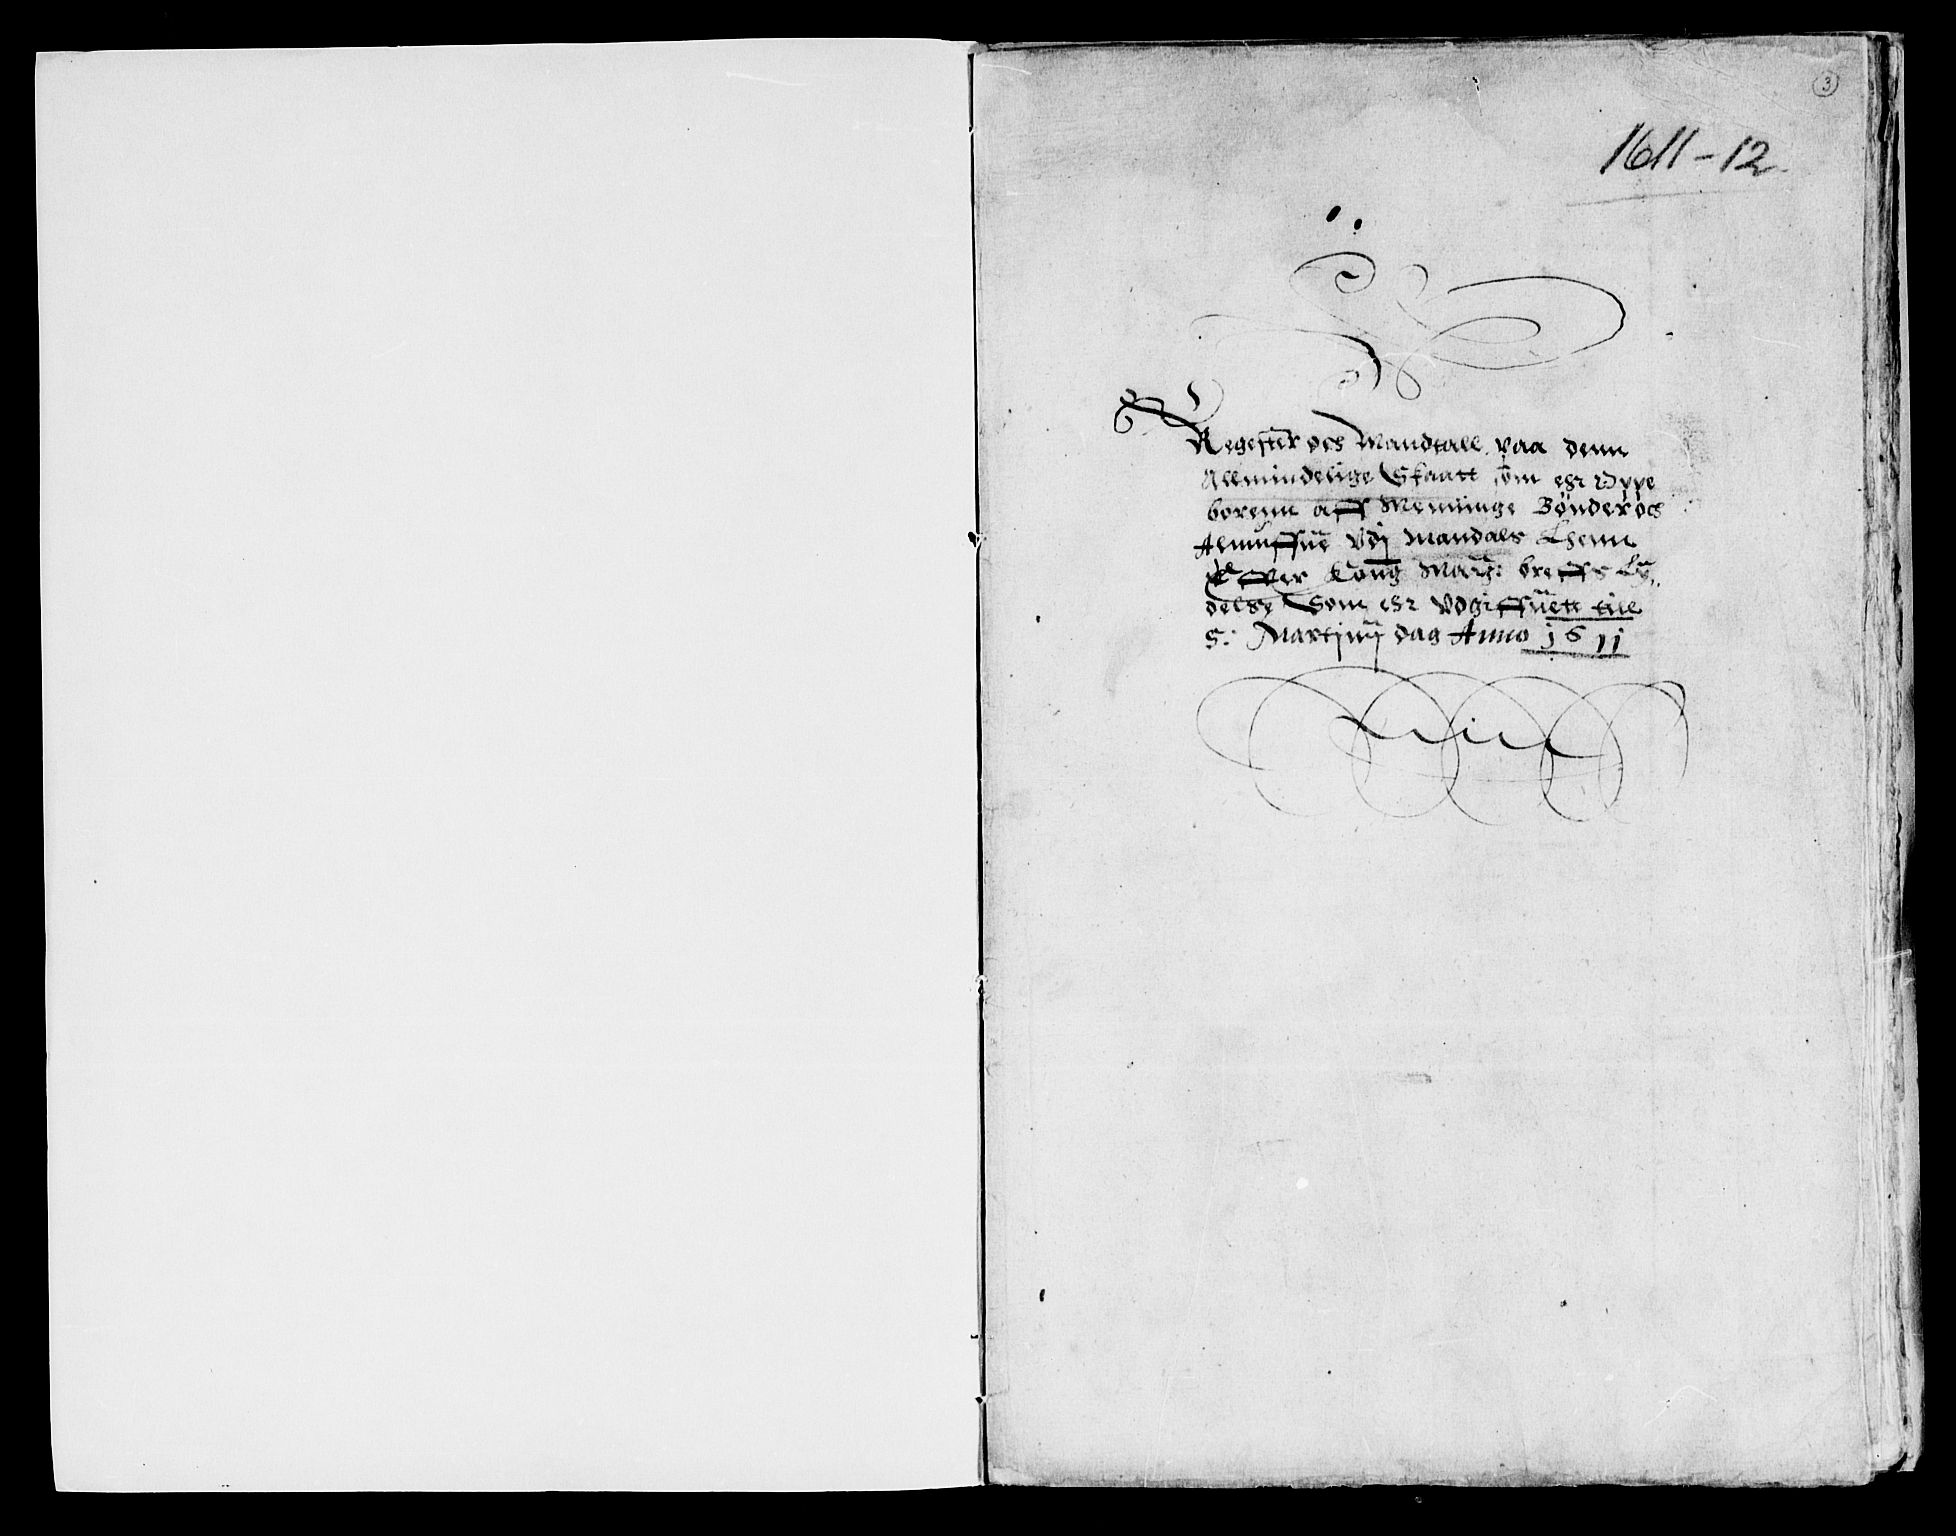 3
1611-12.
Register och Mandtall paa denn
Allmindelige Skaatt som ehr Oppe
borenn aff Menninge Bønder och
Almuffue vdj Mandals Lhenn
Effter Kong: Maytz: breffs Ly„
delse Som ehr vdgiffuett till
S: Martinj dag Anno 1611